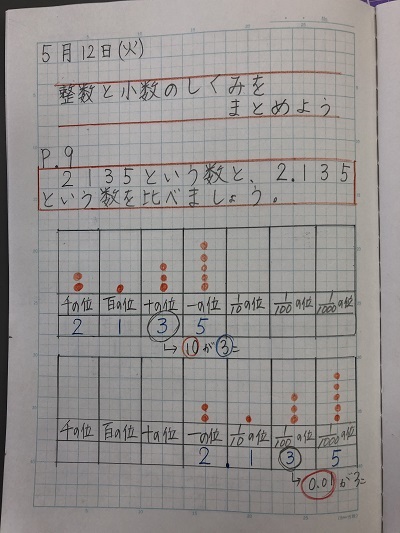 5月12日(火)
整数と小数のしくみを
まとめよう
P.9
2135という数と、2.135
という数を比べましょう。
千の位 百の位 十の位 一の位 1/10の位 1/100の位 1/1000の位
2 1 3 5
→10が3こ
千の位 百の位 十の位 一の位 1/10の位 1/100の位 1/1000の位
2.1 3 5
→0.01が3こ